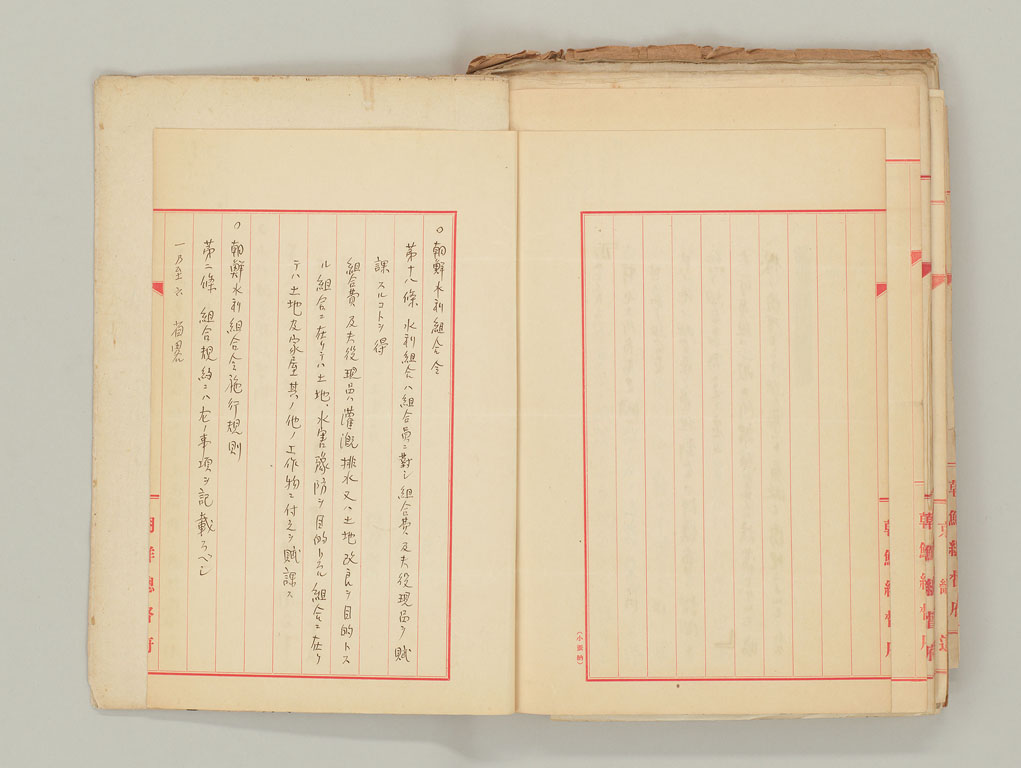 ○朝鮮水利組合令
第十八條 水利組合ハ組合員ニ對シ組合費及夫役現品ヲ賦
課スルコトヲ得
組合費及夫役現品ハ灌漑排水又ハ土地改良ヲ目的トス
ル組合ニ在リテハ土地、水害豫防ヲ目的トスル組合ニ在リ
テハ土地及家屋其ノ他ノ工作物ニ付之ヲ賦課ス
○朝鮮水利組合令施行規則
第二條 組合規約ニハ左ノ事項ヲ記載スベシ
一乃至六 省畧
朝鮮總督府
朝鮮總督府
朝鮮總督府
朝鮮總督府